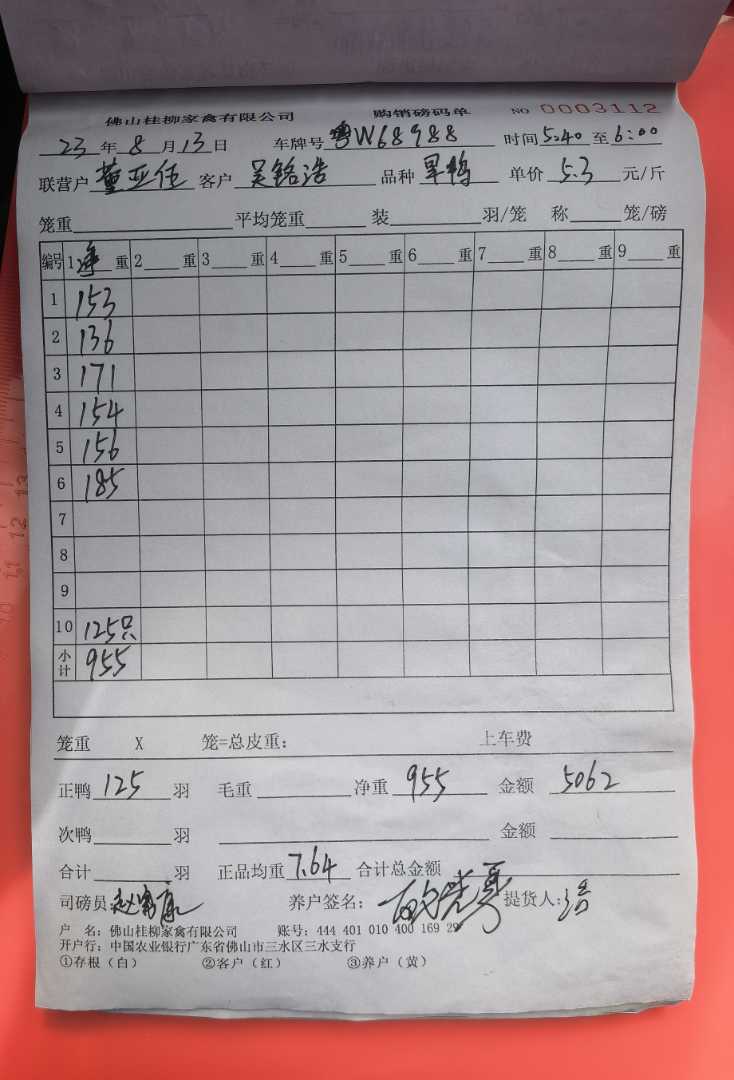 佛山桂柳家禽有限公司 购销磅码单 NO 0003112
23年8月13日 车牌号粤W68988 时间5:40至6:00
联营户董亚伍 客户吴铭浩 品种旱鸭 单价5.3元/斤
笼重 平均笼重 装 羽/笼 称 笼/磅
编号 1净重 2 重 3 重 4 重 5 重 6 重 7 重 8 重 9 重
1 153
2 136
3 171
4 154
5 156
6 185
7
8
9
10 125只
小计 955
笼重 X 笼=总皮重: 上车费
正鸭125羽 毛重 净重955 金额5062
次鸭 羽 金额
合计 羽 正品均重7.64 合计总金额
司磅员: 养户签名: 提货人:浩
户 名: 佛山桂柳家禽有限公司 账号: 444 401 010 400 169 29
开户行: 中国农业银行广东省佛山市三水区三水支行
①存根(白) ②客户(红) ③养户(黄)